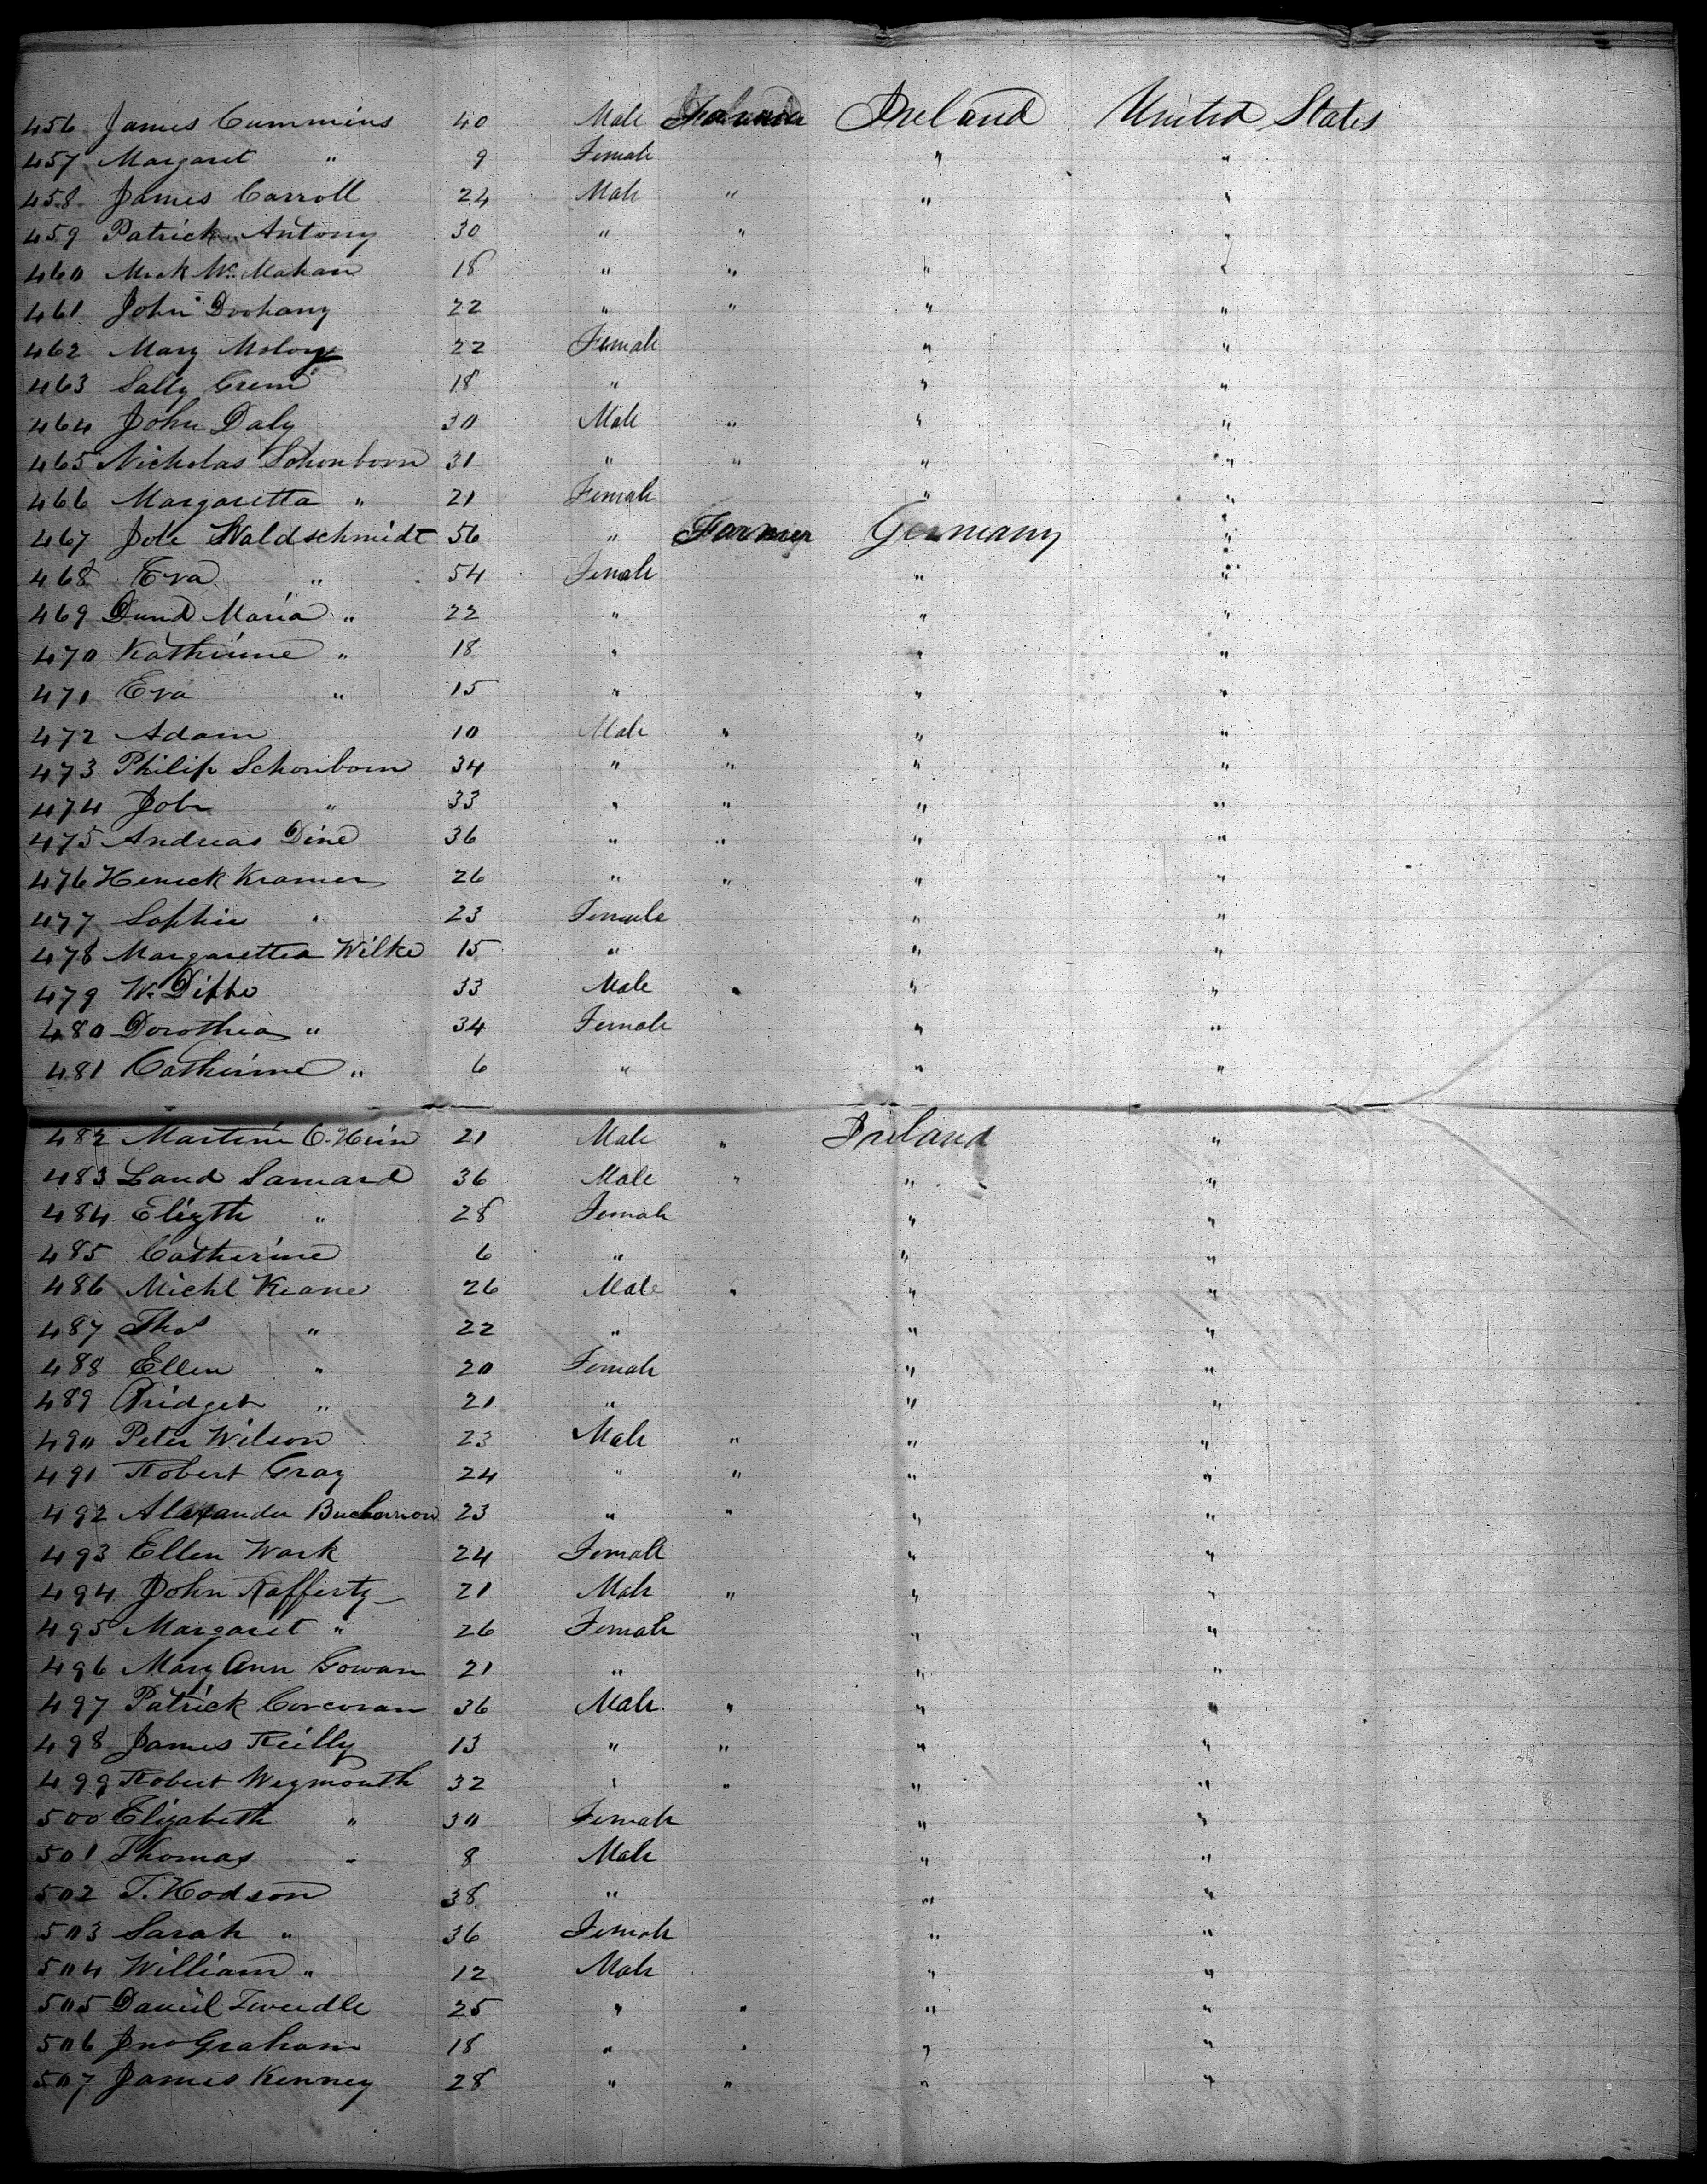 456 James Cummins 40 Male Ireland United States
457 Margaret " 9 Female " "
458 James Carroll 24 Male " " "
459 Patrick Antony 30 " " "
460 Mick Mc Mahan 18 " " " "
461 John Doohany 22 " " " "
462 Mary Molony 22 Female " "
463 Sally 18 " " "
464 John Daly 30 Male " " "
465 Nicholas Schonborn 31 " " " "
466 Margaretta " 21 Female " "
467 Joh Waldschmidt 56 " Farmer Germany "
468 Eva " 54 Female " "
469 Maria " 22 " " "
470 Kathrinne " 18 " " "
471 Eva " 15 " " "
472 Adam 10 Male " " "
473 Philip Schonborn 34 " " " "
474 Joh " 33 " " " "
475 Andreas Dine 36 " " " "
476 Heneck Kramer 26 " " " "
477 Sophie " 23 Female " "
478 Margarettea Wilke 15 " " "
479 W. 33 Male " " "
480 Dorothea " 34 Female " "
481 Catherine " 6 " " "
482 Martin O. Hein 21 Male " Ireland "
483 36 Male " " "
484 Elizth " 28 Female " "
485 Catherine 6 " " "
486 Michl Keane 26 Male " " "
487 Thos " 22 " " "
488 Ellen " 20 Female " "
489 Bridget " 21 " " "
490 Peter Wilson 23 Male " " "
491 Robert Gray 24 " " " "
492 Alexander Buchannon 23 " " " "
493 Ellen Wark 24 Female " "
494 John Rafferty 21 Male " " "
495 Margaret " 26 Female " "
496 Mary Ann Gowan 21 " " "
497 Patrick Corcoran 36 Male " " "
498 James Reilly 13 " " " "
499 Robert Weymouth 32 " " " "
500 Elizabeth " 30 Female " "
501 Thomas " 8 Male " "
502 T. Hodson 38 " " "
503 Sarah " 36 Female " "
504 William " 12 Male " "
505 Daniel Tweedle 25 " " " "
506 Jno Graham 18 " " " "
507 James Kenney 28 " " " "